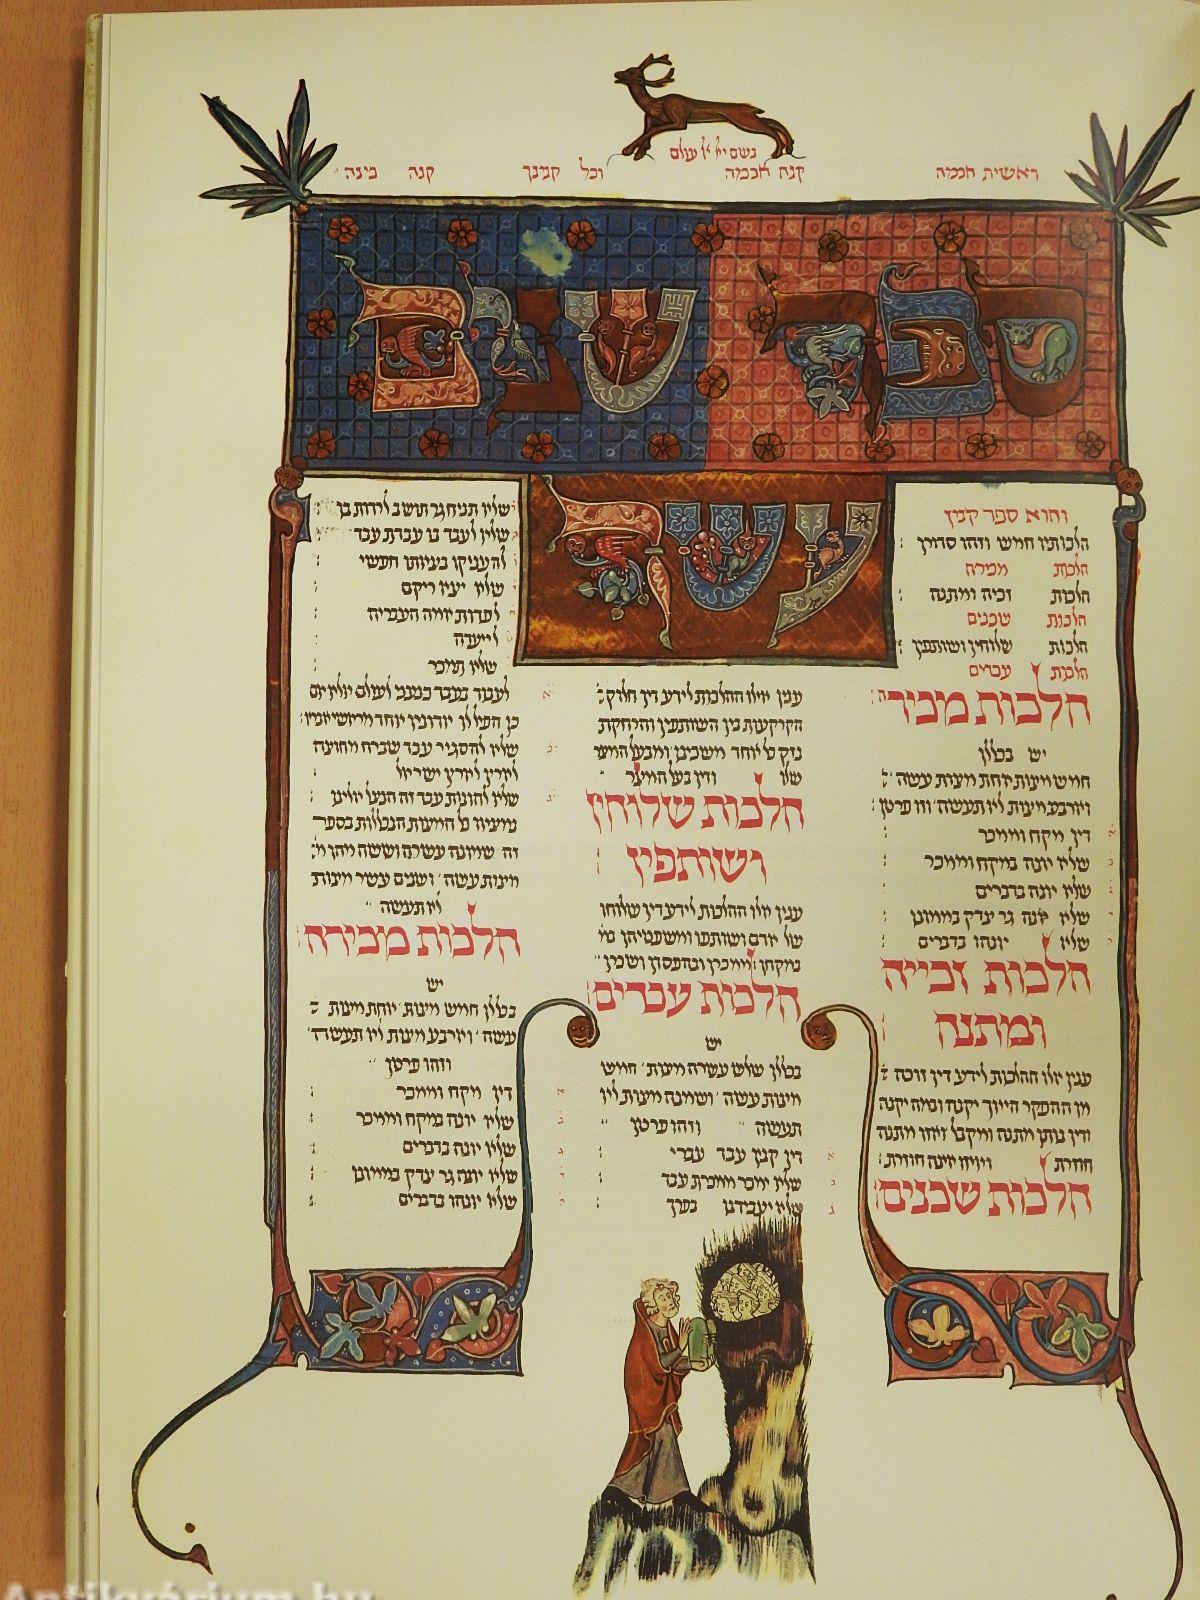 בשם ייי אל עולם
ראשית חכמה קנה חכמה וכל קנינך קנה בינה
ספר שנים
עשר
והוא ספר קנין
הלכותיו חמש וזהו סדורן
הלכות מכירה
הלכות זכיה ומתנה
הלכות שכנים
הלכות שלוחין ושותפין
הלכות עבדים
הלכות מכירה
יש בכללן
חמש מצות אחת מצות עשה
וארבע מצות לא תעשה וזהו פרטן
דין מקח וממכר
שלא יונה במקח וממכר
שלא יונה בדברים
שלא יונה גר צדק בממונו
שלא יונהו בדברים
הלכות זכייה
ומתנה
ענין אלו ההלכות לידע דין זוכה
מן ההפקר היאך יקנה ובמה יקנה
ודין נותן מתנה ומקבל ואיזו מתנה
חוזרת ואיזו אינה חוזרת
הלכות שכנים
ענין אלו ההלכות לידע דין חלוק
הקרקעות בין השותפין והרחקת
נזק כל אחד משכינו ומבעל המצר
שלו ודין בעל המצר
הלכות שלוחין
ושותפין
ענין אלו ההלכות לידע דין שלוחו
של אדם ושותפו ומשפטיהן
במקחן וממכרן ובהפסדן ושכרן
הלכות עבדים
יש
בכללן שלש עשרה מצות חמש
מצות עשה ושמנה מצות לא
תעשה וזהו פרטן
דין קנין עבד עברי
שלא ימכר ממכרת עבד
שלא יעבידנו בפרך
שלא תניח גר תושב לרדות בו
שלא לעבד בו עבודת עבד
להעניקו בצאתו חפשי
שלא יצא ריקם
לפדות אמה העבריה
לייעדה
שלא תמכר
לעבוד בעבד כנעני לעולם אלא אם
כן הפיל לו אדוניו אחד מראשי אבריו
שלא להסגיר עבד שברח מחוצה
לארץ לארץ ישראל
שלא להונות עבד זה הנצל אלינו
נמצאו כל המצות הנכללות בספר
זה שמונה עשרה וששה מהן
מצות עשה ושנים עשר מצות
לא תעשה
הלכות מכירה
יש
בכללן חמש מצות אחת מצות
עשה וארבע מצות לא תעשה
וזהו פרטן
דין מקח וממכר
שלא יונה במקח וממכר
שלא יונה בדברים
שלא יונה גר צדק בממונו
שלא יונהו בדברים
Antikvárium.hu